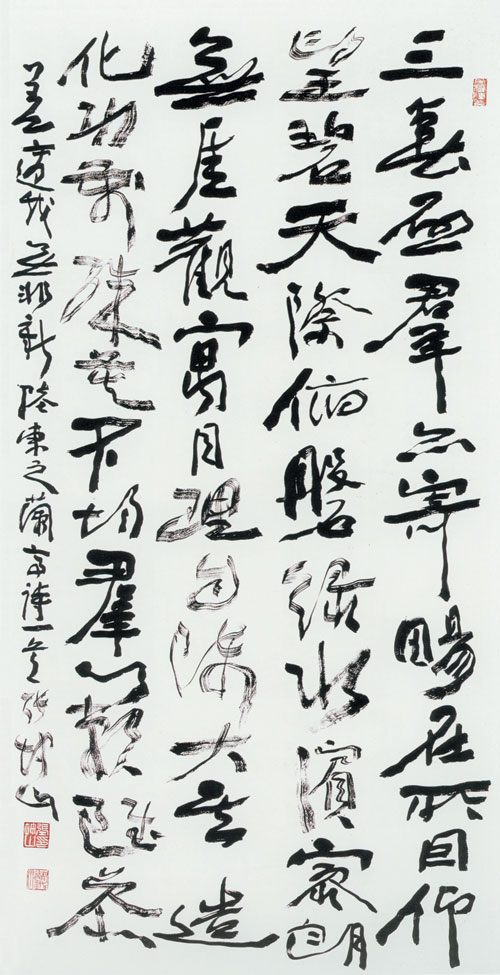 三春啟群品寄暢在所因仰
望碧天際俯磐綠水濱寥朗
無厓觀寓目理自陳大矣造
化功萬殊莫不均羣籟雖參
差適我無非新 陸柬之蘭亭詩一首 張坤山